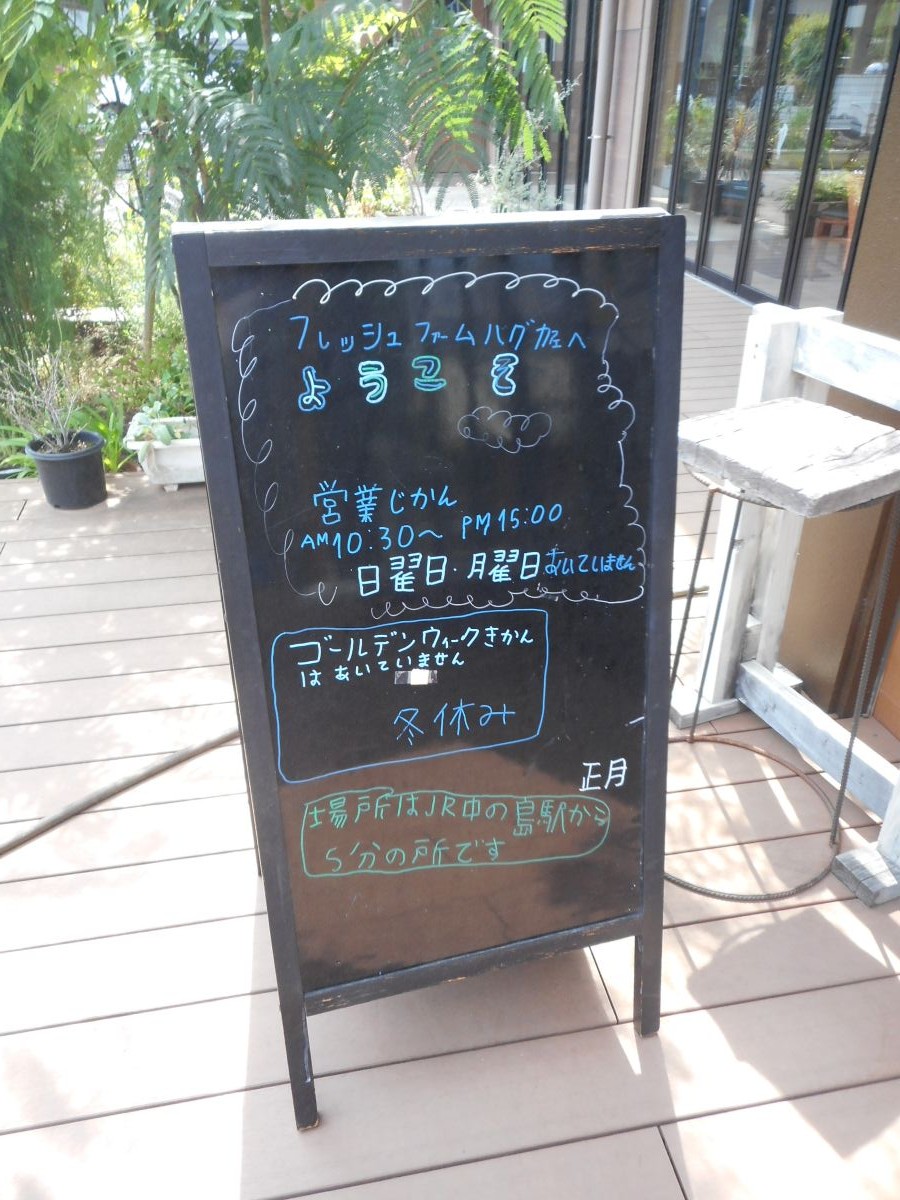 フレッシュファームハグカフェへ
ようこそ
営業じかん
AM10:30〜 PM15:00
日曜日・月曜日あいていません
ゴールデンウィークきかん
はあいていません
冬休み
正月
場所はJR中の島駅から
5分の所です